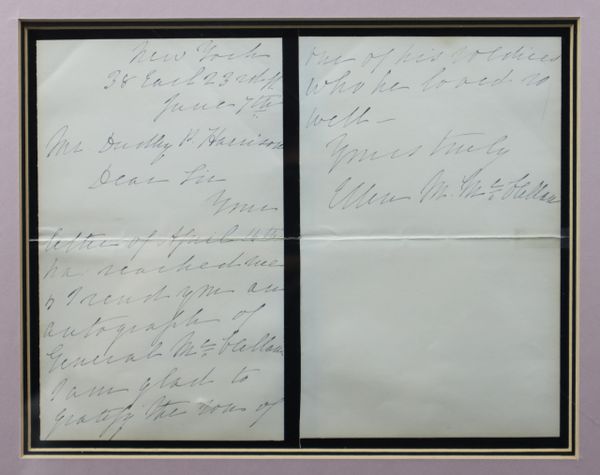 New York
38 East 23rd St
June 7th
Mr. Dudley P. Harrison
Dear Sir
Your
letter of April 10th
has reached me
& I send you an
autograph of
General McClellan
I am glad to
gratify the son of
one of his soldiers
who he loved so
well -
Yours truly
Ellen M. McClellan